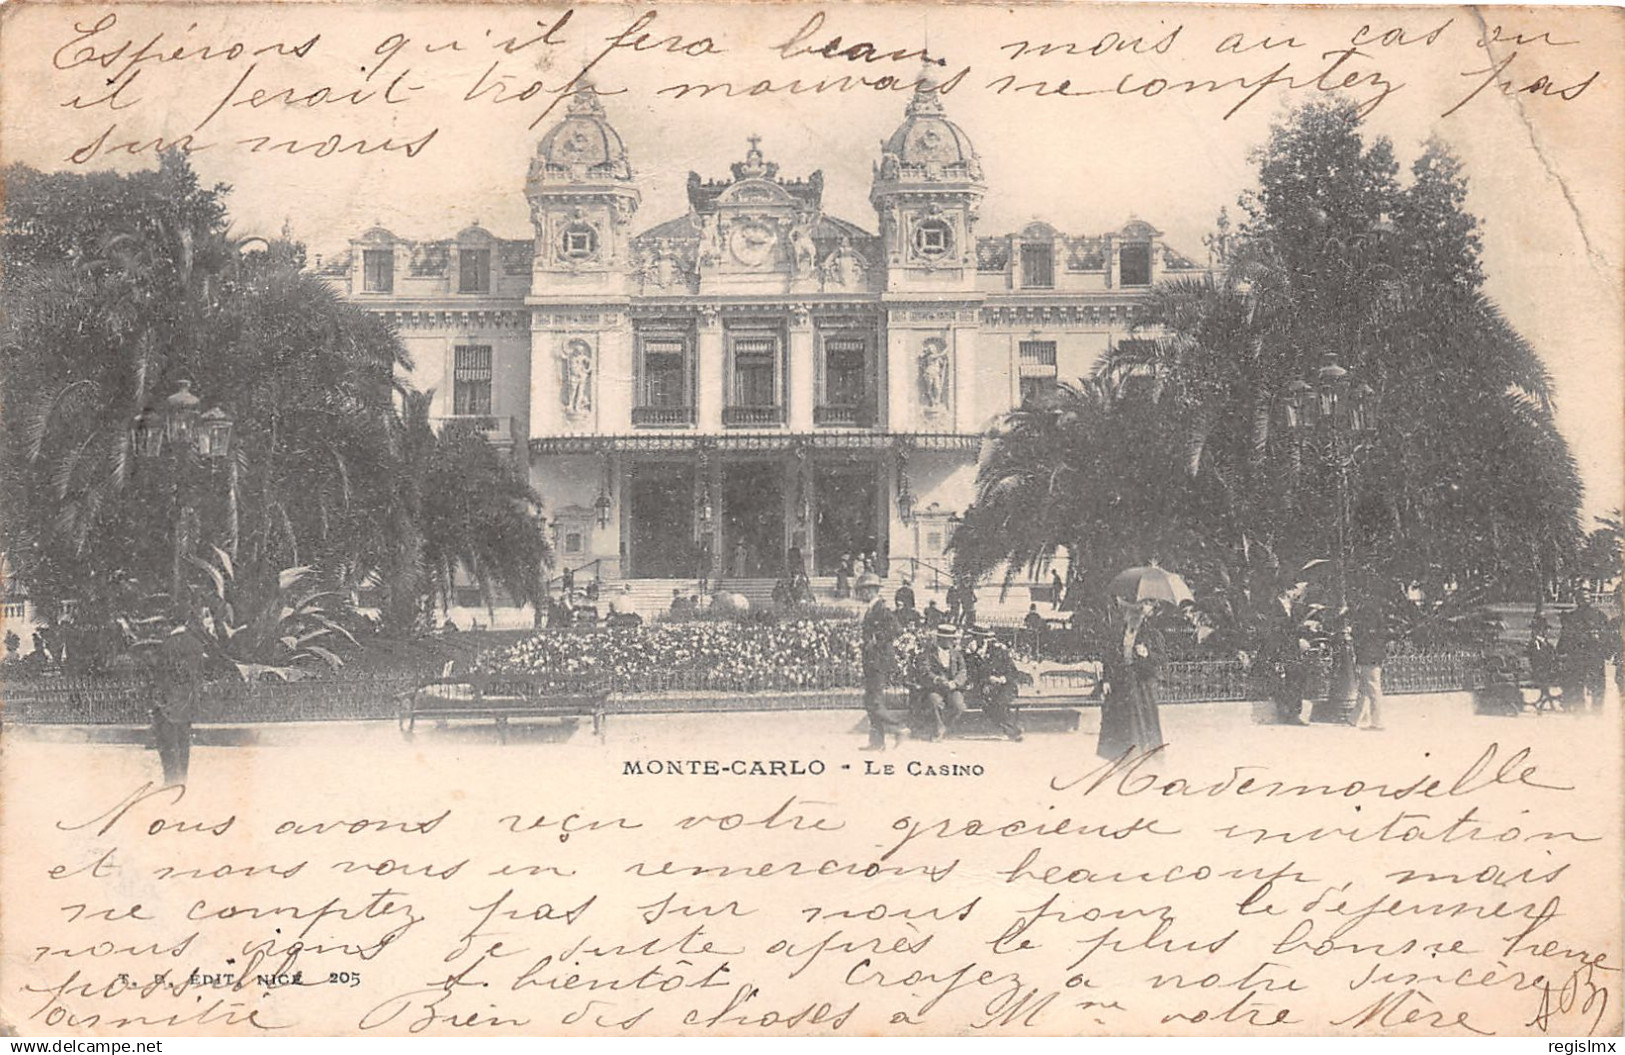 Espérons qu'il fera beau mais au cas ou
il ferait trop mauvais ne comptez pas
sur nous
MONTE-CARLO - LE CASINO
Mademoiselle
Nous avons reçu votre gracieuse invitation
et nous vous en remercions beaucoup, mais
ne comptez pas sur nous pour le déjeuner
nous irons de suite après le plus bonne heure
possible à bientôt Croyez à notre sincère
T. D. ÉDIT. NICE 205
amitié Bien des choses à Mme votre Mère
delcampe.net
regislmx